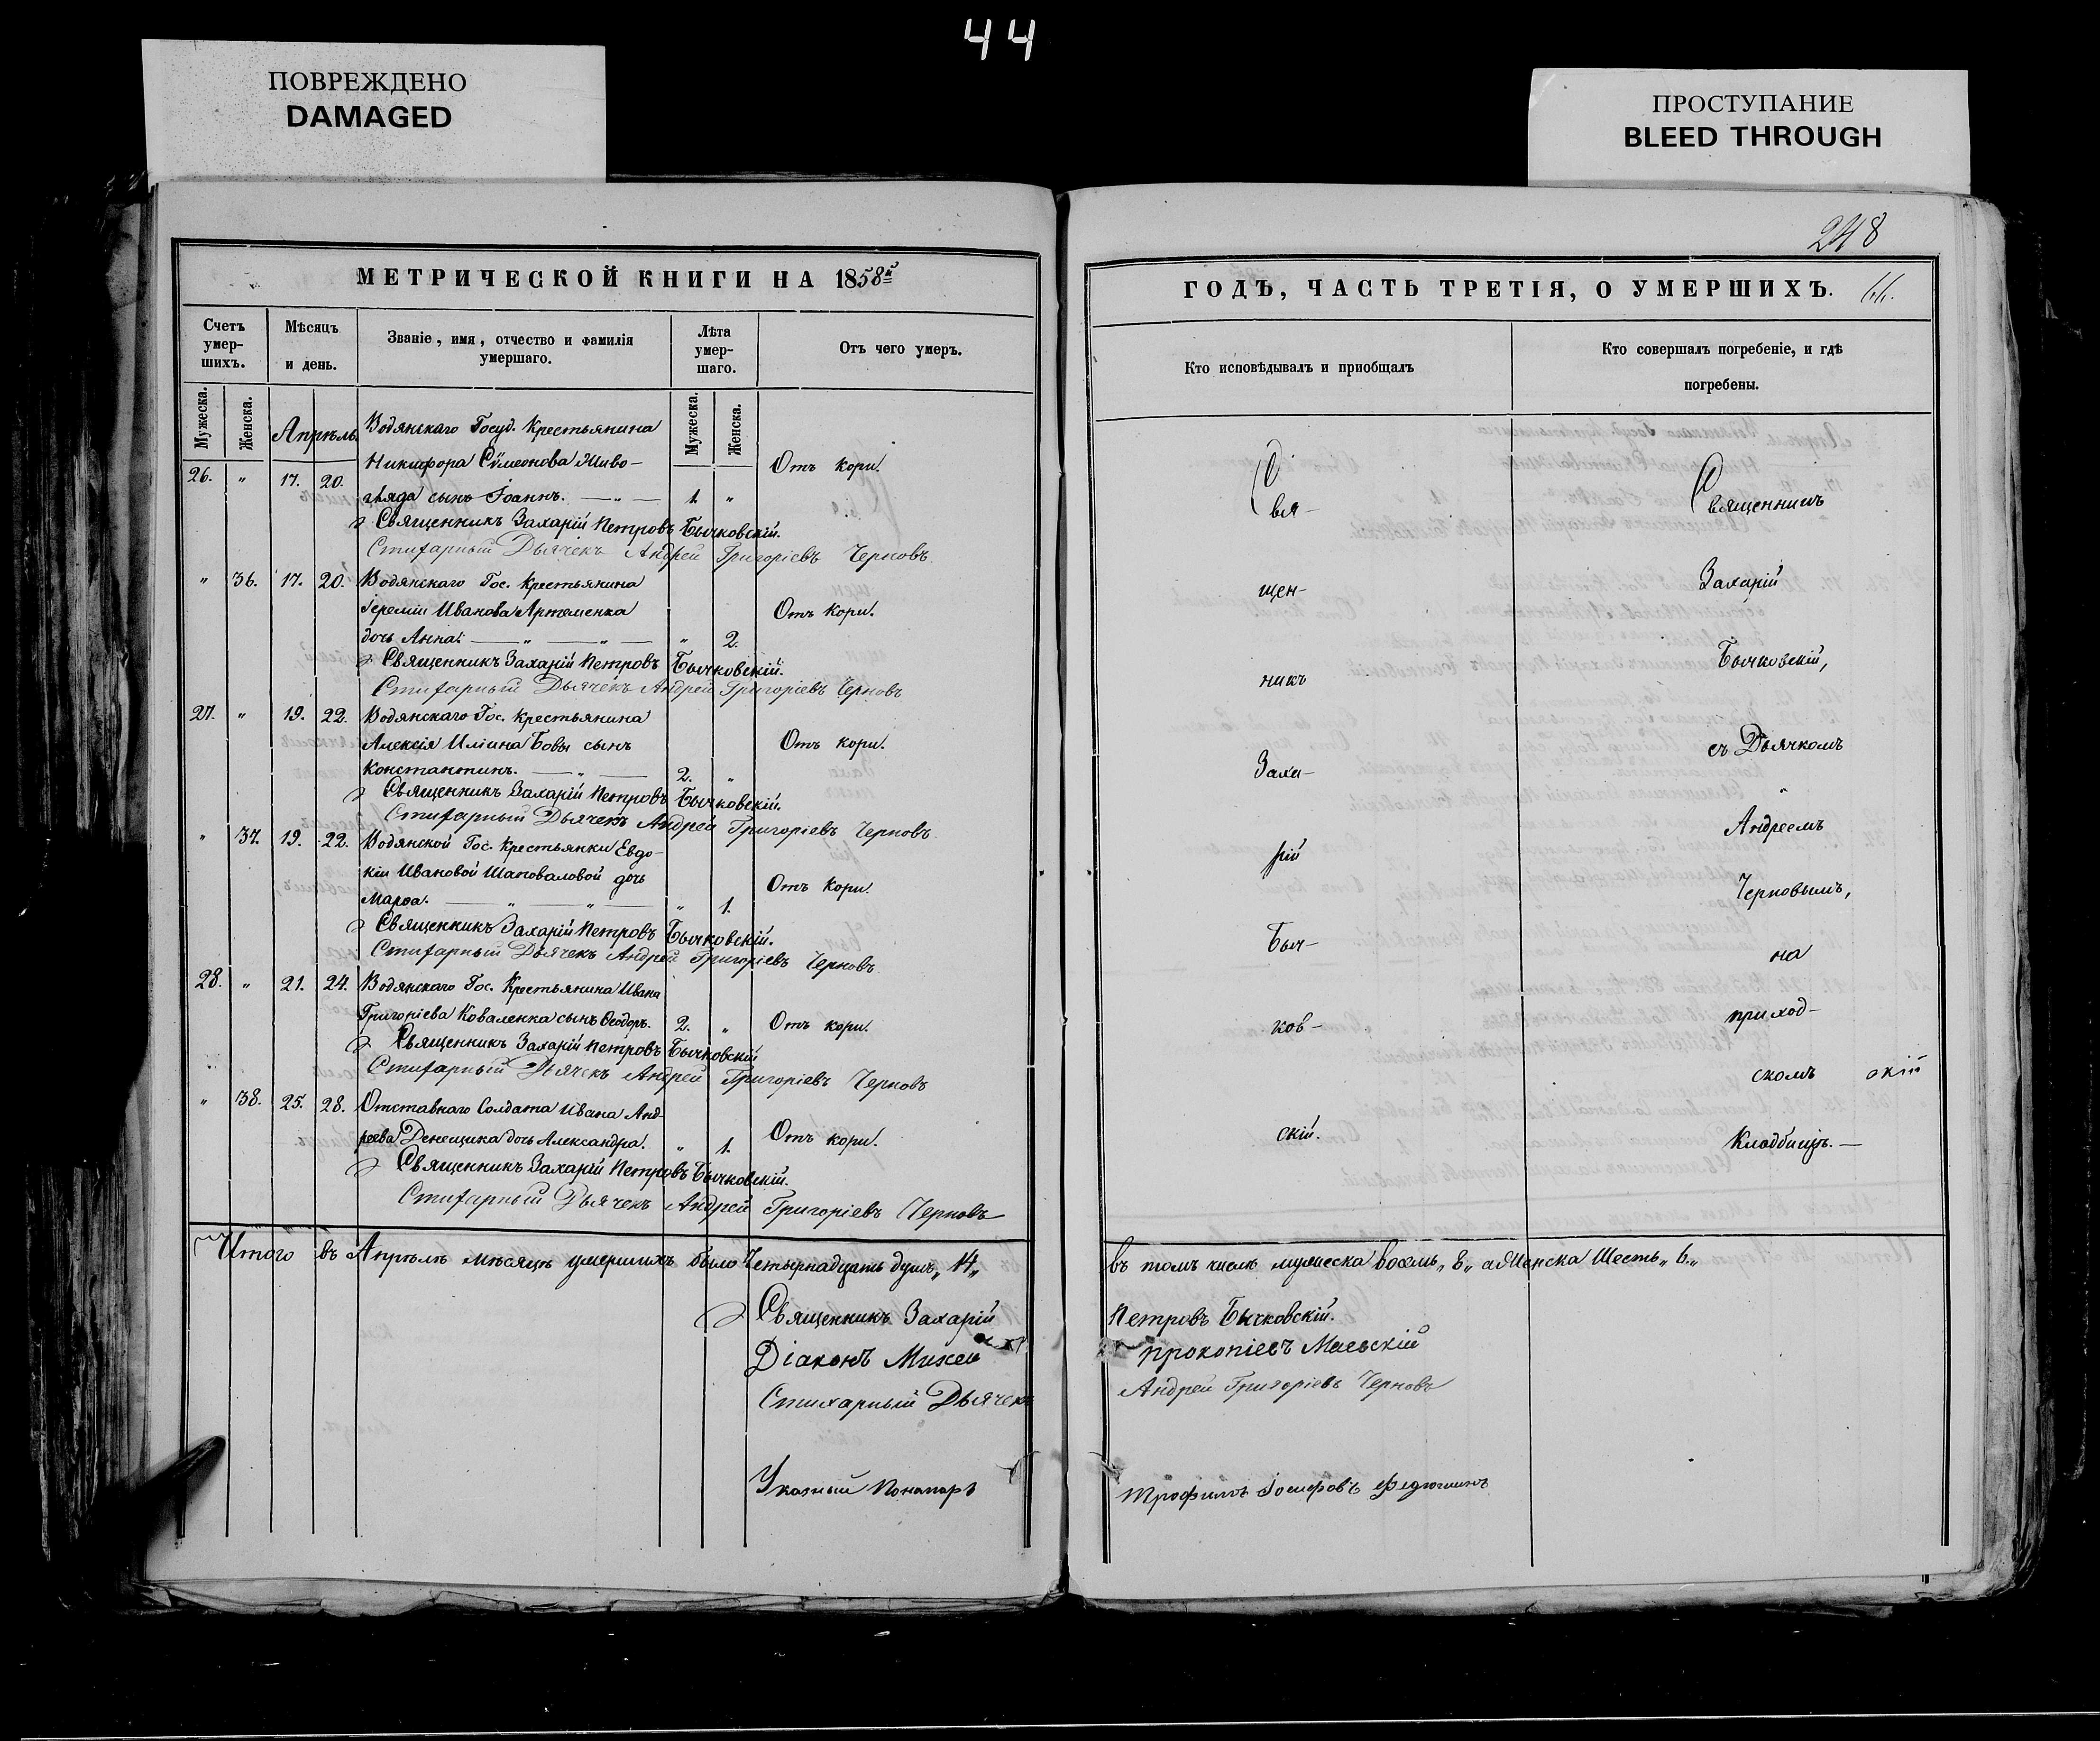 44
ПОВРЕЖДЕНО
DAMAGED
ПРОСТУПАНИЕ
BLEED THROUGH
248
МЕТРИЧЕСКОЙ КНИГИ НА 1858й
Счетъ умер-шихъ.
Мѣсяцъ и день.
Званіе, имя, отчество и фамилія умершаго.
Лѣта умер-шаго.
Отъ чего умеръ.
Мужеска. Женска. Апрѣль. Мужеска. Женска.
Водянскаго Госуд. Крестьянина
Никифора Сѵмеонова Живо-
26. " 17. 20. гляда сынъ Іоаннъ. — " — 1. " Отъ кори.
Священникъ Захарій Петровъ Бычковскій.
Стихарный Дьячекъ Андрей Григоріевъ Черновъ
" 36. 17. 20. Водянскаго Гос. Крестьянина
Іереміи Иванова Артеменка Отъ кори.
дочь Анна. — " — " — " 2.
Священникъ Захарій Петровъ Бычковскій.
Стихарный Дьячекъ Андрей Григоріевъ Черновъ
27. " 19. 22. Водянскаго Гос. Крестьянина
Алексія Иліина Бовы сынъ Отъ кори.
Константинъ. — " — 2. "
Священникъ Захарій Петровъ Бычковскій.
Стихарный Дьячекъ Андрей Григоріевъ Черновъ
" 37. 19. 22. Водянской Гос. Крестьянки Евдо-
кіи Ивановой Шаповаловой дочь Отъ кори.
Марѳа. — " — " — " 1.
Священникъ Захарій Петровъ Бычковскій.
Стихарный Дьячекъ Андрей Григоріевъ Черновъ
28. " 21. 24. Водянскаго Гос. Крестьянина Ивана
Григоріева Коваленка сынъ Ѳеодоръ. 2. " Отъ кори.
Священникъ Захарій Петровъ Бычковскій
Стихарный Дьячекъ Андрей Григоріевъ Черновъ
" 38. 25. 28. Отставнаго Солдата Ивана Анд-
реева Денещика дочь Александра. " 1. Отъ кори.
Священникъ Захарій Петровъ Бычковскій.
Стихарный Дьячекъ Андрей Григоріевъ Черновъ
Итого въ Апрѣлѣ мѣсяцѣ умершихъ было Четырнадцать душъ, 14,,
Священникъ Захарій
Діаконъ Михей
Стихарный Дьячекъ
Указный Пономарь
ГОДЪ, ЧАСТЬ ТРЕТІЯ, О УМЕРШИХЪ. 66.
Кто исповѣдывалъ и пріобщалъ
Кто совершалъ погребеніе, и гдѣ погребены.
Свя-
щен-
никъ
Заха-
рій
Быч-
ков-
скій.
Священникъ
Захарій
Бычковскій,
съ Дьячкомъ
Андреемъ
Черновымъ,
на
приход-
скомъ
Кладбищѣ. —
скій
въ томъ числѣ мужеска восемь, 8,, а Женска Шесть,, 6.,,
Петровъ Бычковскій.
Прокопіевъ Маевскій
Андрей Григоріевъ Черновъ
Трофимъ Іосифовъ